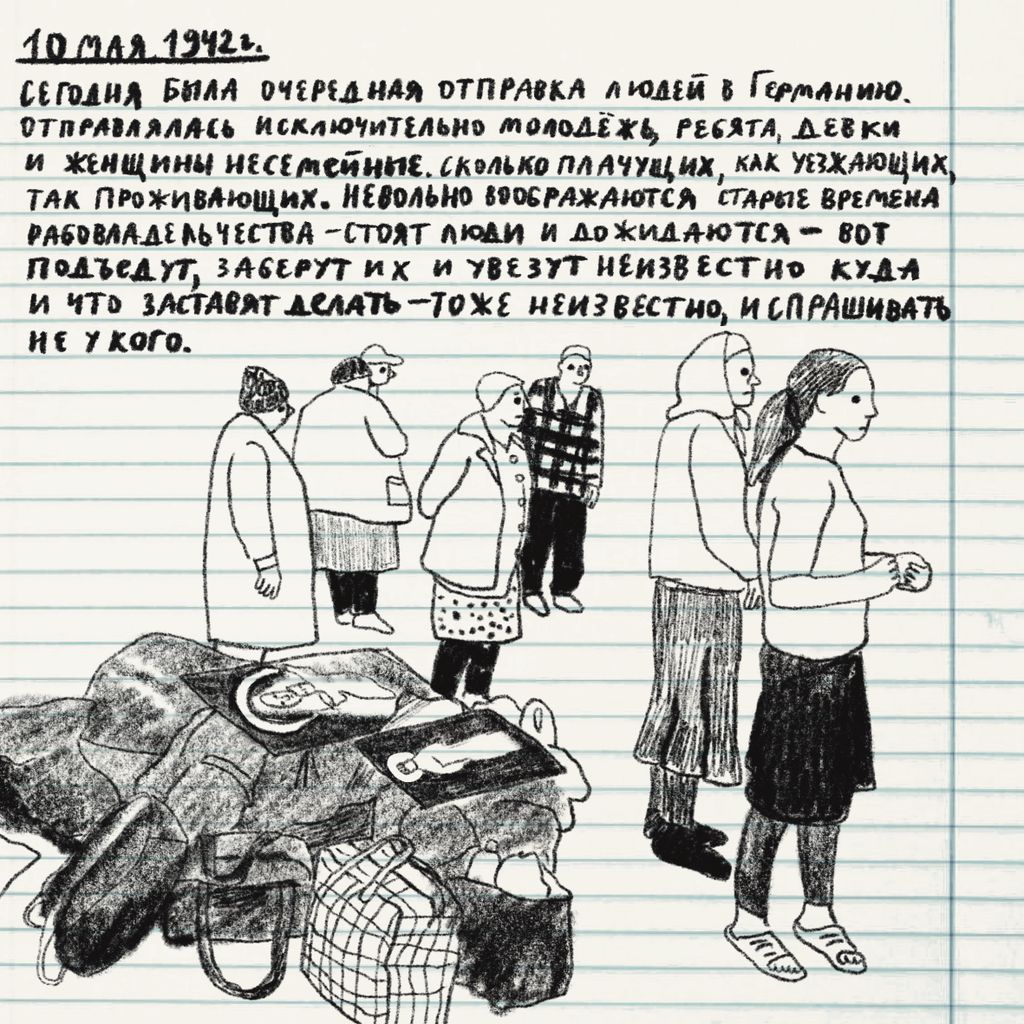 10 МАЯ 1942г.
СЕГОДНЯ БЫЛА ОЧЕРЕДНАЯ ОТПРАВКА ЛЮДЕЙ В ГЕРМАНИЮ.
ОТПРАВЛЯЛАСЬ ИСКЛЮЧИТЕЛЬНО МОЛОДЁЖЬ, РЕБЯТА, ДЕВКИ
И ЖЕНЩИНЫ НЕСЕМЕЙНЫЕ. СКОЛЬКО ПЛАЧУЩИХ, КАК УЕЗЖАЮЩИХ,
ТАК ПРОЖИВАЮЩИХ. НЕВОЛЬНО ВООБРАЖАЮТСЯ СТАРЫЕ ВРЕМЕНА
РАБОВЛАДЕЛЬЧЕСТВА – СТОЯТ ЛЮДИ И ДОЖИДАЮТСЯ – ВОТ
ПОДЪЕДУТ, ЗАБЕРУТ ИХ И УВЕЗУТ НЕИЗВЕСТНО КУДА
И ЧТО ЗАСТАВЯТ ДЕЛАТЬ – ТОЖЕ НЕИЗВЕСТНО, И СПРАШИВАТЬ
НЕ У КОГО.